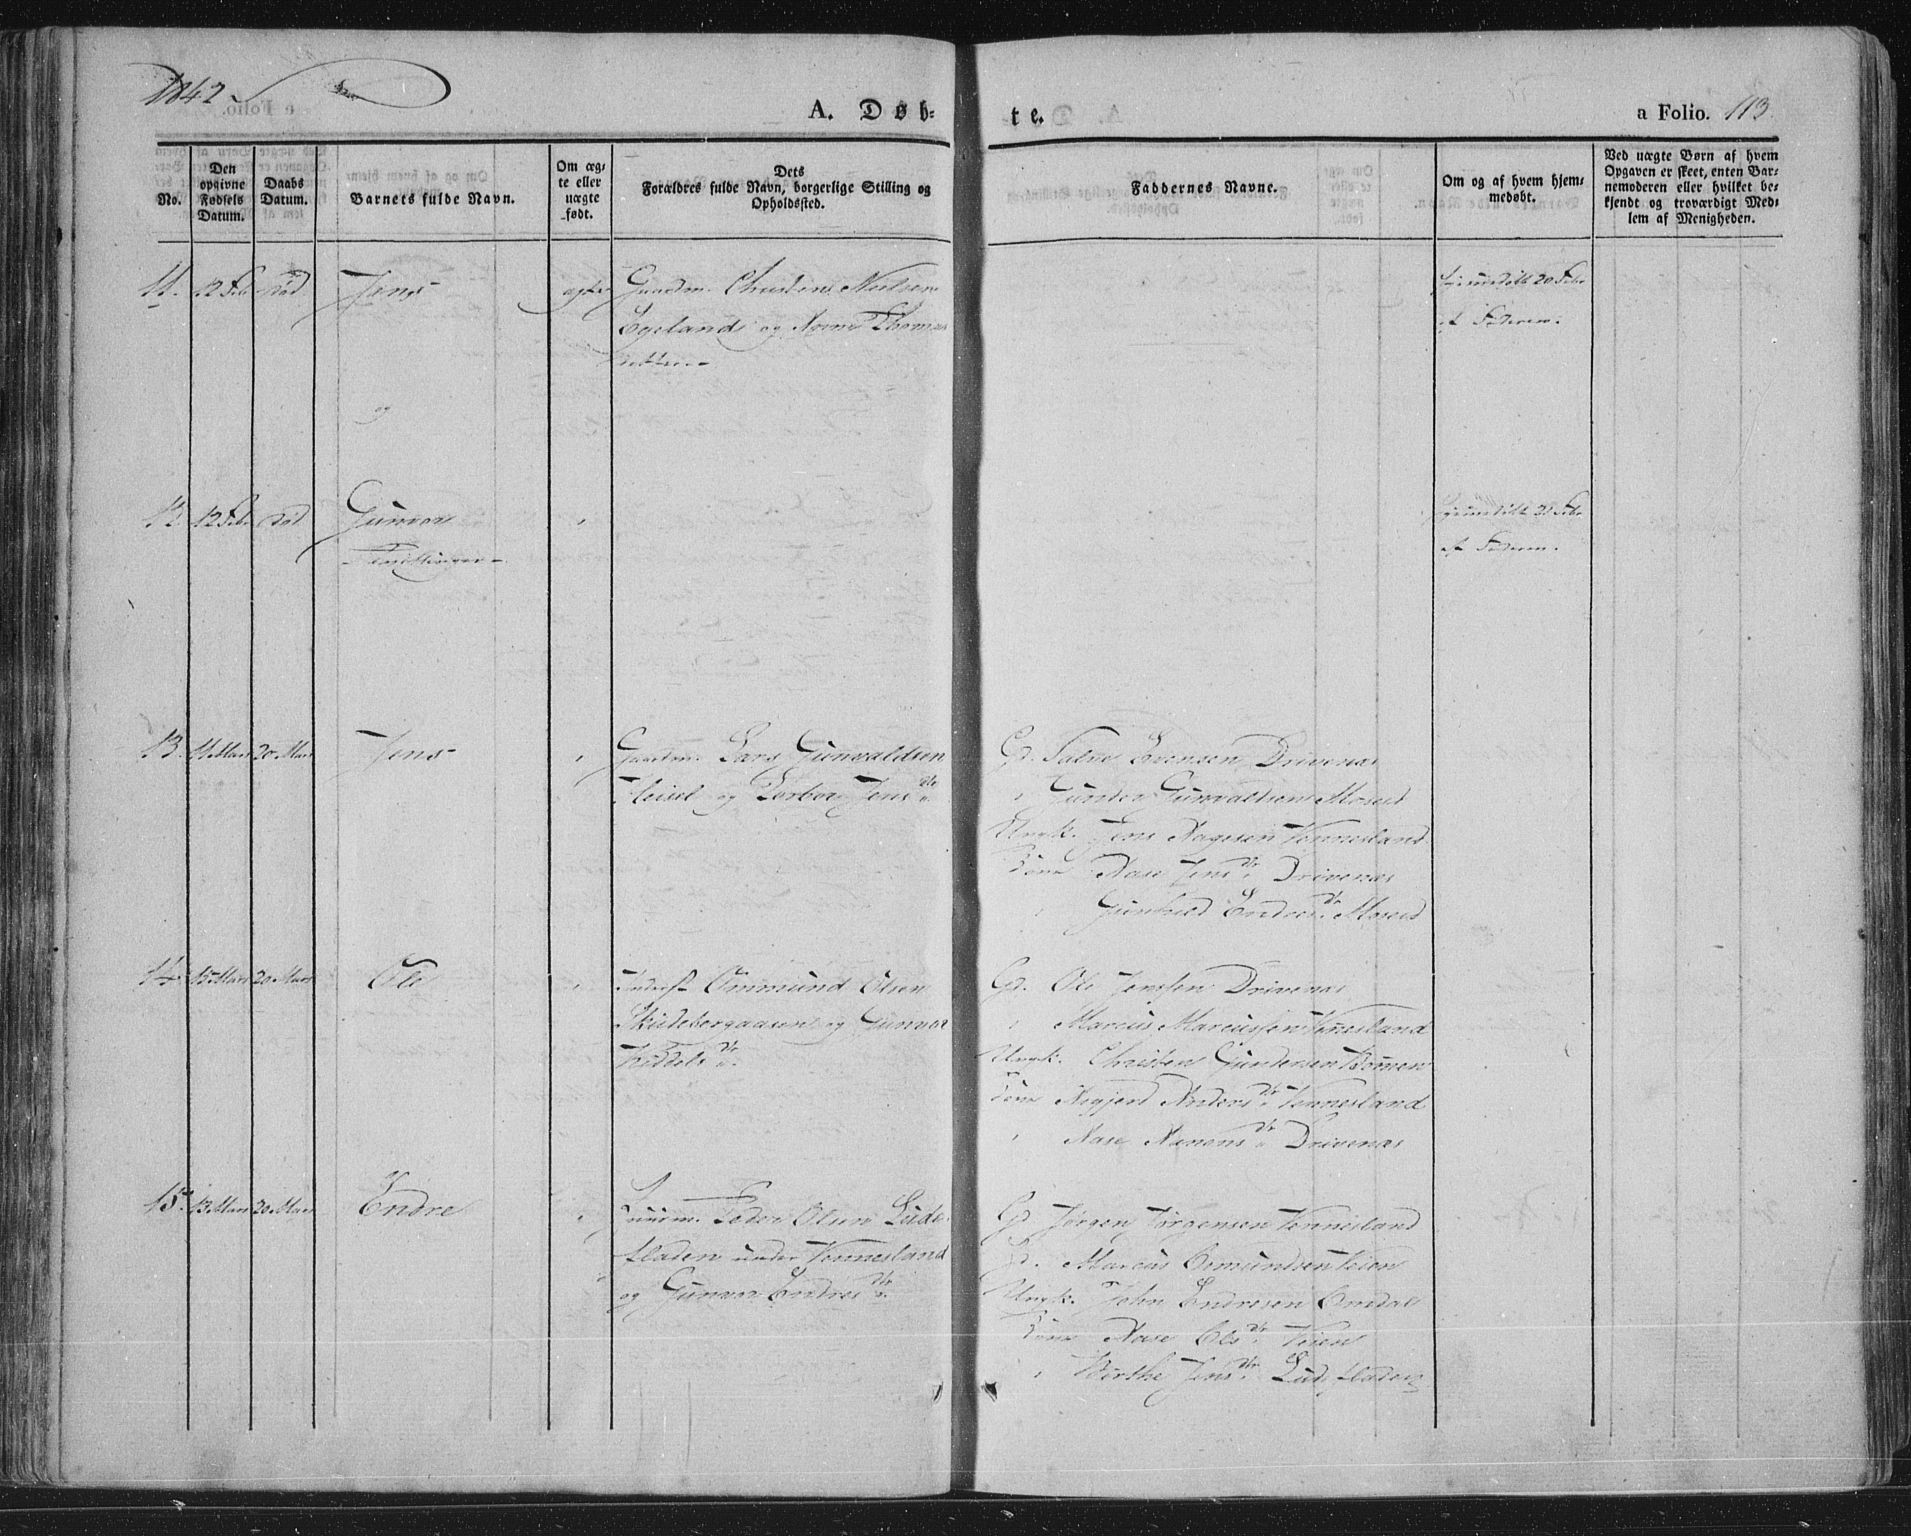 1842
A. Døb-
te.
a Folio. 113.
No.
Den opgivne Fødsels Datum.
Daabs Datum.
Barnets fulde Navn.
Om ægte eller uægte født.
Dets Forældres fulde Navn, borgerlige Stilling og Opholdssted.
Faddernes Navne.
Om og af hvem hjemmedøbt.
Ved uægte Børn af hvem Opgaven er skeet, enten Barnemoderen eller hvilket bekjendt og troværdigt Medlem af Menigheden.
11. 12 Feb død Jens ægte Gaardm. Christen Nielsen
Egeland og Anne Thomas
datter
Hjemmedøbt 20 Febr
af Faderen.
og
12. 12 Feb. død Gunvor
Tvillinger
Hjemmedøbt 20 Febr
af Faderen.
13. 14 Mars 20 Mars Jens " Gaardm. Lars Gunvaldsen
Heisel og Torbor Jensdtr
Gd. Salve Evensen Drivenæs
" Gunder Gunvaldsen Moseid
Ungk. Jens Aagesen Vennesland
Kone Aase Jensdtr Drivenæs
" Gunhild Endresdtr Moseid
14. 15 Mars 20 Mars Ole " Inderst Ommund Olsen
og Gunvor
Kiddelsdtr
Gd. Ole Jenssen Drivenæs
" Marcus Marcussen Vennesland
Ungk. Christen Gundersen
Kone Asgjerd Andersdtr Vennesland
" Aase Aanensdtr Drivenæs
15. 13 Mars 20 Mars Endre " Peder Olsen Lude-
fladen under Vennesland
og Gunvor Endresdtr
Gd. Jørgen Jørgensen Vennesland
Gd. Marcus Omundsen Veien
Ungk. John Endresen Omdal
Kone Aase Olsdtr Veien
" Birthe Jensdtr Ludefladen